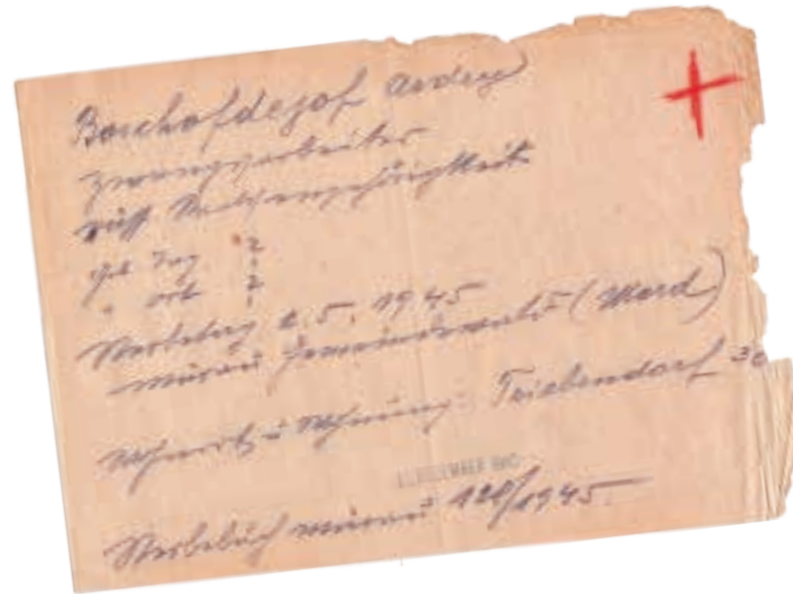 Borchofdejof Andrej
Zwangsarbeiter
russ Staatsangehörigkeit
geb Tag ?
" Ort ?
Sterbetag 2.5.1945
Murau Gemeindewald (Mord)
Wohnsitz u Wohnung: Triebendorf 30
DEZEMBER
Sterbebuch Murau 120/1945.